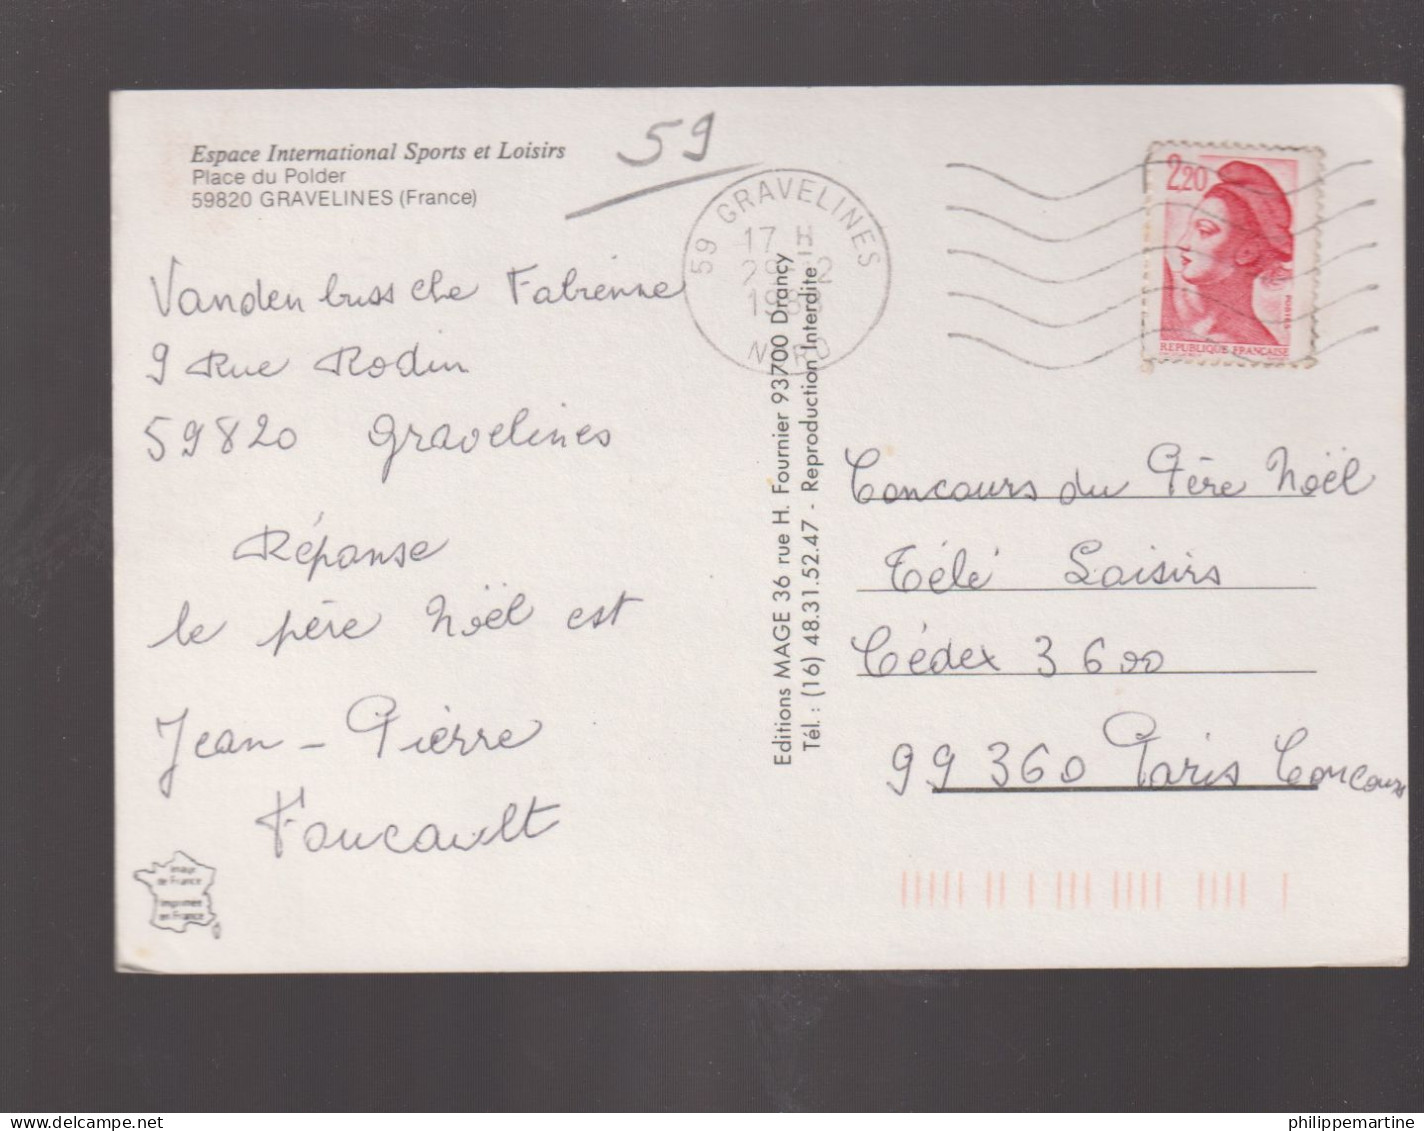 Espace International Sports et Loisirs
Place du Polder
59820 GRAVELINES (France)
59
59 GRAVELINES
17 H
NORD
2,20
POSTES
REPUBLIQUE FRANÇAISE
Vandenbussche Fabienne
9 Rue Rodin
59820 Gravelines
Réponse
le père Noël est
Jean-Pierre
Foucault
Editions MAGE 36 rue H. Fournier 93700 Drancy
Tél. : (16) 48.31.52.47 - Reproduction Interdite
Concours du Père Noël
Télé Loisirs
Cédex 3600
99360 Paris Concours
Image
de France
Imprimée
en France
philippemartine